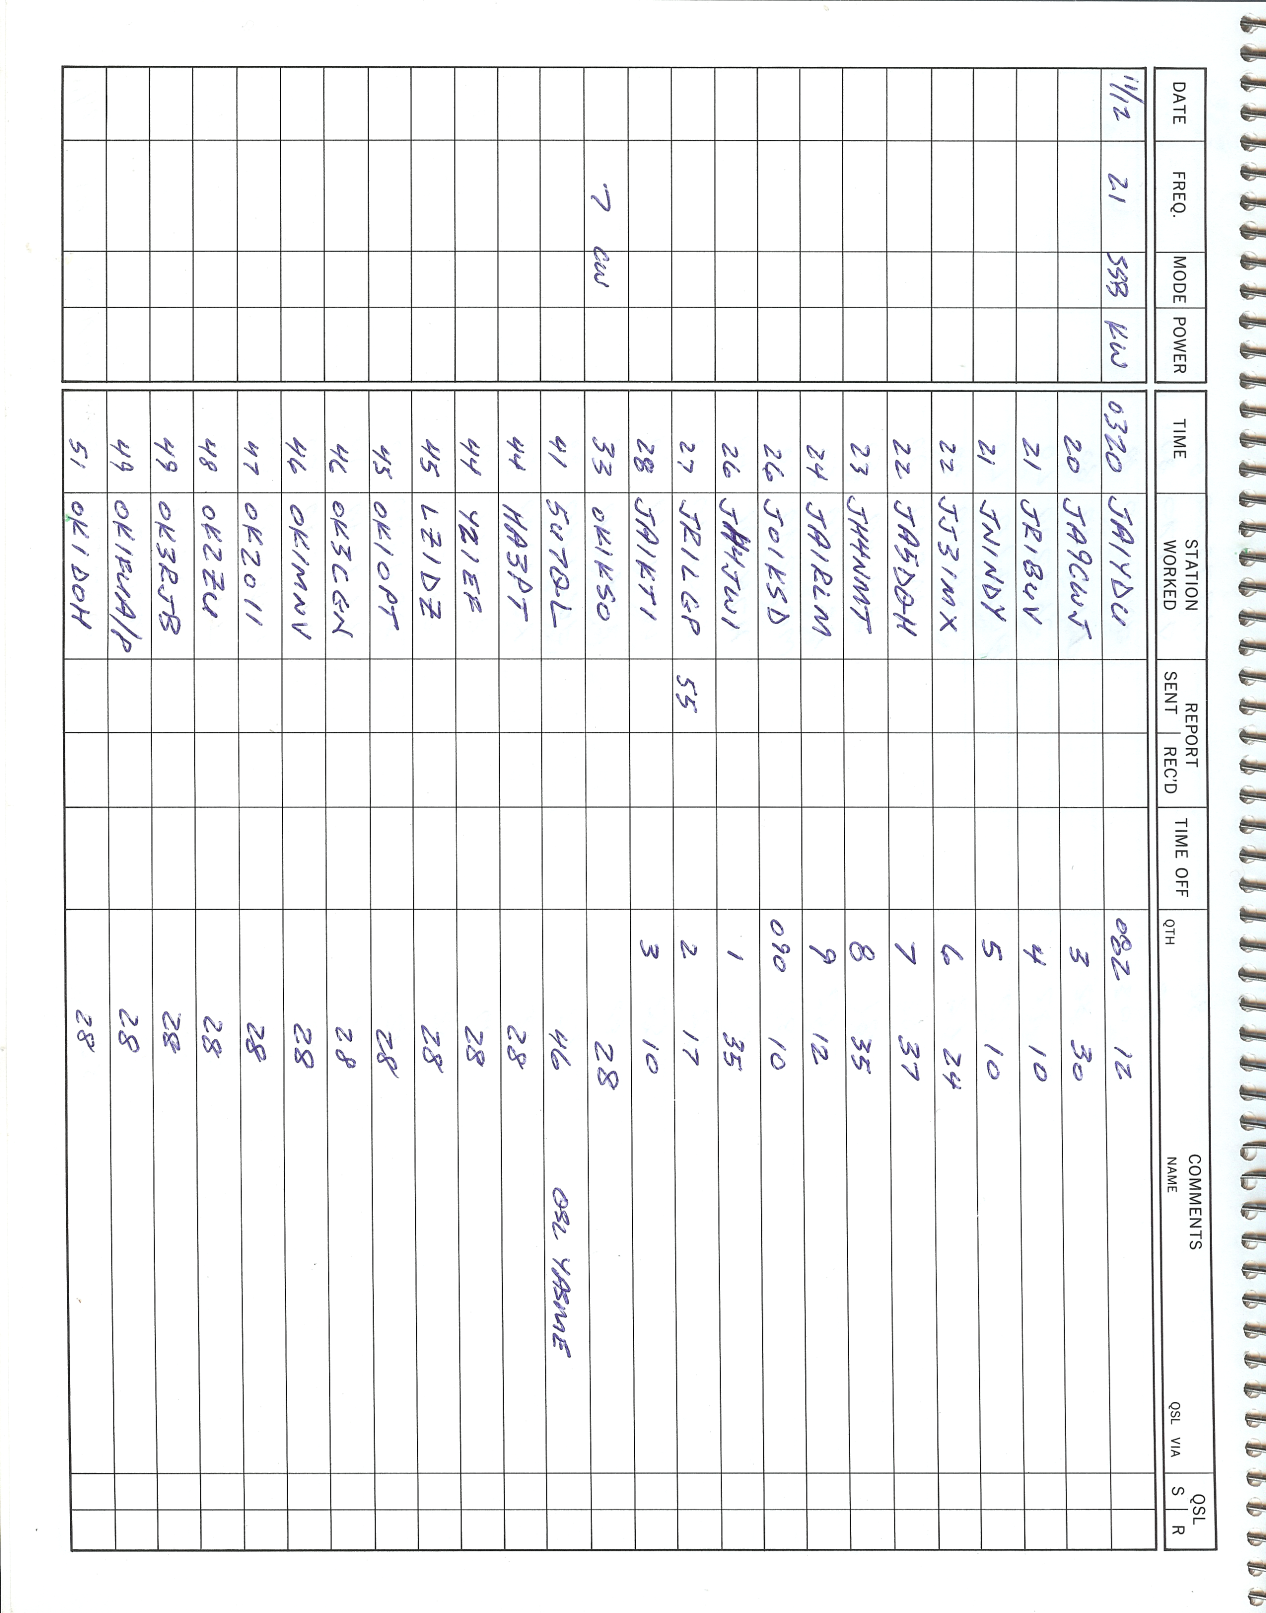 DATE FREQ. MODE POWER TIME STATION WORKED REPORT SENT REC'D TIME OFF QTH COMMENTS NAME QSL VIA QSL S R
11/12 21 SSB KW 0320 JA1YDU 082 12
20 JA9CWJ 3 30
21 JR1BUV 4 10
21 JN1NDY 5 10
22 JJ3IMX 6 24
22 JA5DQH 7 37
23 JH4NMT 8 35
24 JA1RLM 9 12
26 JO1KSD 090 10
26 JH4JWI 1 35
27 JR1LGP 55 2 17
28 JA1KTI 3 10
7 CW 33 OK1KSO 28
41 5U7QL 46 QSL YASME
44 HA3PT 28
44 28
45 LZ1DZ 28
45 OK1OPT 28
46 OK3CGN 28
46 OK1MNV 28
47 OK2OII 28
48 OK2ZU 28
49 OK3RJB 28
49 28
51 OK1DOH 28